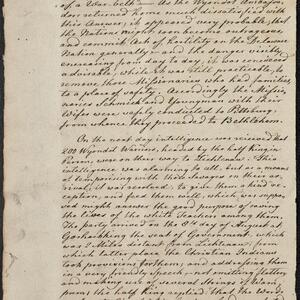 of a War-belt. As the Wyondot Ambassa-
dors returned home much dissatisfied with
this Answer, it appeared very probable, that
the Nations might soon become outrageous
and commit Acts of Hostility on the Delaware
Nation generally and the danger visibly
encreasing from day to day, it was conceived
advisable, while it was still practicable, to
remove those Missionaries who had families,
to a place of safety. Accordingly the Missio-
naries Schmick and Youngman with their
Wifes were safely conducted to Pittsburg
from whence they proceeded to Bethlehem.
On the next day intelligence was received that
200 Wyondot Warriors, headed by the half King in
Person, were on their way to Lichtenau. This
intelligence was alarming to all, but as a means
of temporising with those Savages on their ar-
rival, it was resolved to give them a kind re-
ception, and feed them all, which was suppo-
sed might answer the good purpose of saving
the lives of the white Teachers among them.
The party arrived on the 8 day of August at
Goschachking the seat of Government, which
was 2 Miles distant from Lichtenau; from
which latter place the Christian Indians
took provisions for them, and addressing them
in a very friendly Speech, not omitting flattery
and making use of several Strings of Wam-
pum the half King replied that the Wy-